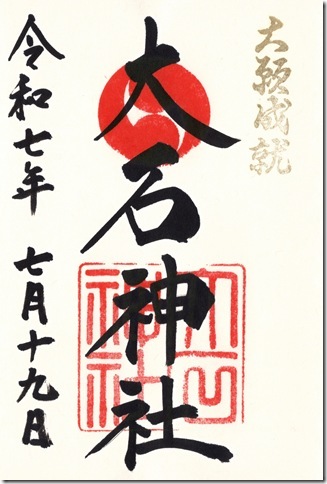 大願成就
大石神社
令和七年 七月十九日
大石
神社